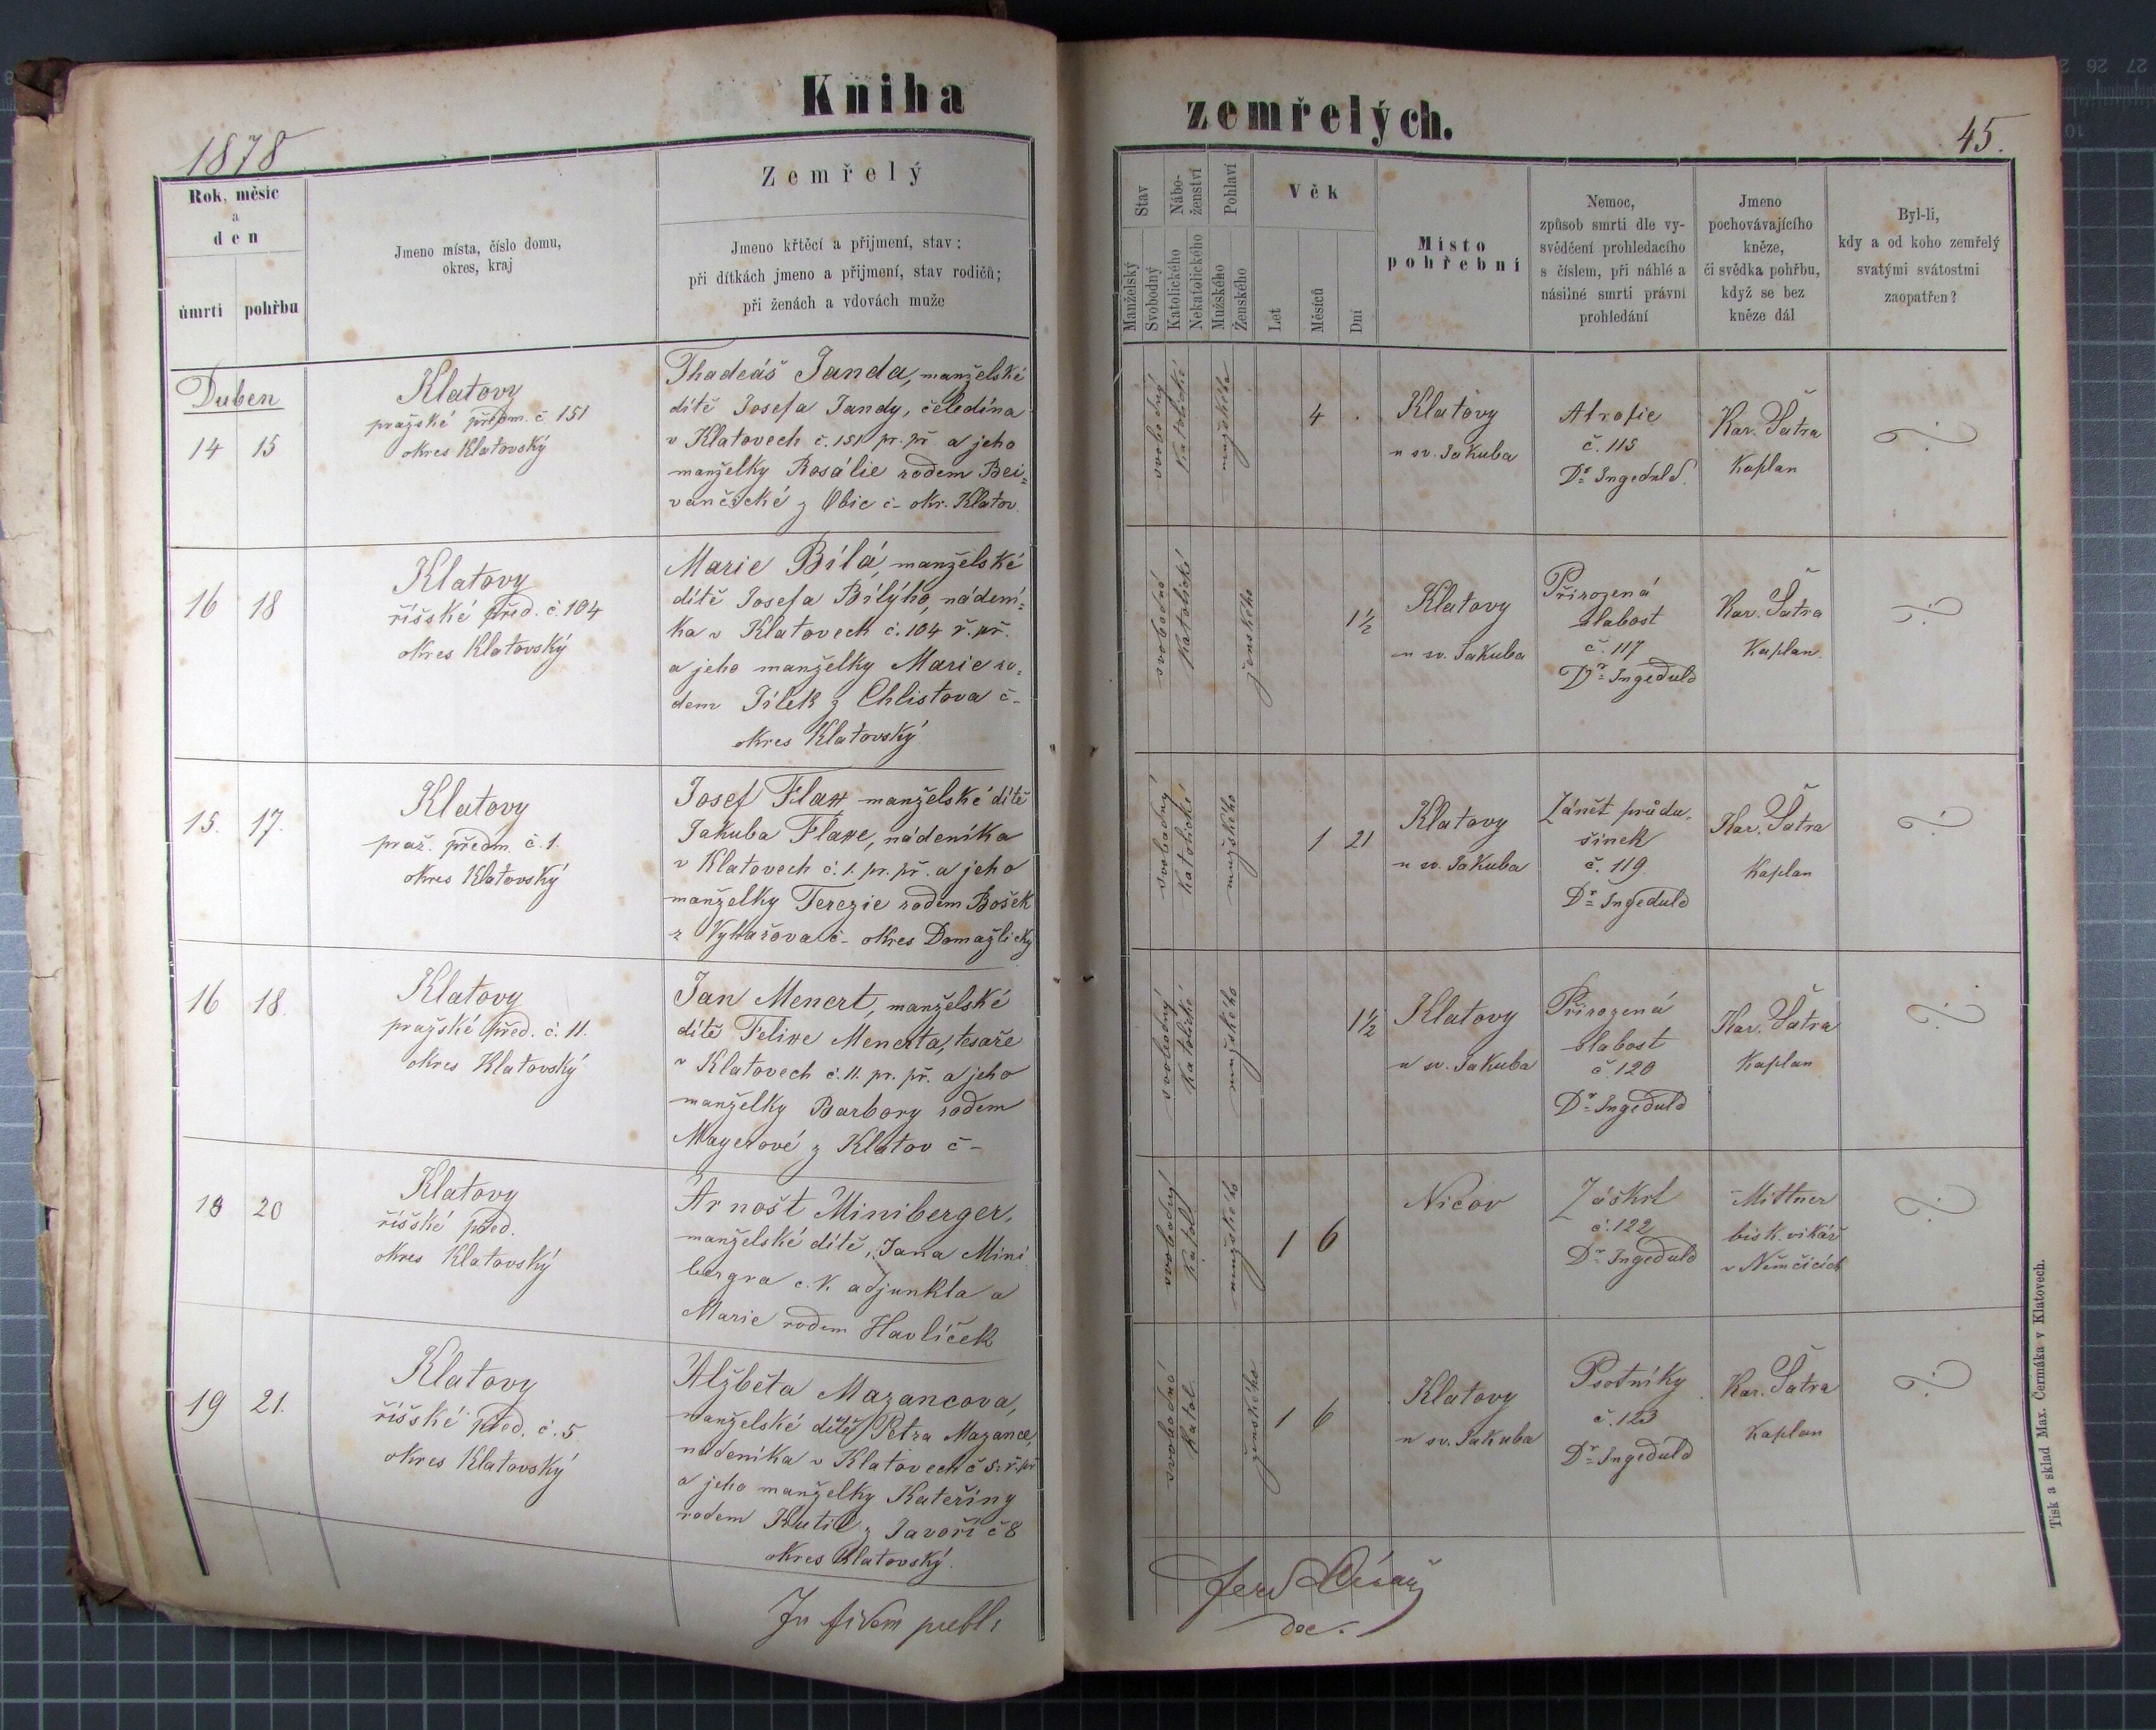 Kniha
zemřelých.
1878
45.
Rok, měsíc
a
den
úmrtí
pohřbu
Jmeno místa, číslo domu,
okres, kraj
Zemřelý
Jmeno křtěcí a přijmení, stav:
při dítkách jmeno a přijmení, stav rodičů;
při ženách a vdovách muže
Stav
Manželský
Svobodný
Nábo-
ženství
Katolického
Nekatolického
Pohlaví
Mužského
Ženského
Věk
Let
Měsíců
Dní
Místo
pohřební
Nemoc,
způsob smrti dle vy-
svědčení prohledacího
s číslem, při náhlé a
násilné smrti právní
prohledání
Jmeno
pochovávajícího
kněze,
či svědka pohřbu,
když se bez
kněze dál
Byl-li,
kdy a od koho zemřelý
svatými svátostmi
zaopatřen?
Duben
14 15
Klatovy
pražské předm. č 151
okres Klatovský
Thadeáš Janda, manželské
dítě Josefa Jandy, čeledína
v Klatovech č. 151 pr. př. a jeho
manželky Rosálie rodem Bei=
vančické z Obic č- okr. Klatov.
svobodný
Katolické
mužského
4 .
Klatovy
u sv. Jakuba
Atrofie
č. 115
Dr Ingeduld.
Kar. Šatra
Kaplan
16 18
Klatovy
říšské před. č. 104
okres Klatovský
Marie Bílá, manželské
dítě Josefa Bílýho, nádení=
ka v Klatovech č. 104 ř. př.
a jeho manželky Marie ro=
dem Jílek z Chlistova č-
okres Klatovský
svobodná
Katolické
ženského
1½
Klatovy
u sv. Jakuba
Přirozená
slabost
č. 117
Dr Ingeduld
Kar. Šatra
Kaplan.
15. 17.
Klatovy
praž. předm č. 1.
okres Klatovský
Josef Flax, manželské dítě
Jakuba Flaxe, nádeníka
v Klatovech č. 1. pr. př. a jeho
manželky Terezie rodem Bošek
z č- okres Domažlický
svobodný
Katolické
mužského
1 21
Klatovy
u sv. Jakuba
Zánět průdu-
šinek
č. 119.
Dr Ingeduld
Kar. Šatra
Kaplan
16 18.
Klatovy
pražské před. č. 11.
okres Klatovský
Jan Menert, manželské
dítě Felixe Menerta, tesaře
v Klatovech č. 11. pr. př. a jeho
manželky Barbory rodem
Mayerové z Klatov č-
svobodný
Katolické
mužského
1½
Klatovy
u sv. Jakuba
Přirozená
slabost
č. 120
Dr Ingeduld
Kar. Šatra
Kaplan
18 20
Klatovy
říšské před.
okres Klatovský
Arnošt Miniberger,
manželské dítě, Jana Mini
bergra c. k. adjunkta a
Marie rodem Havlíček
svobodný
Katol.
mužského
1 6
Nicov
Záškrt
č. 122
Dr Ingeduld
Mittner
bisk. vikář
v Němčicích
19 21.
Klatovy
říšské před. č. 5
okres Klatovský
Alžběta Mazancova,
manželské dítě Petra Mazance,
nádeníka v Klatovech č 5. ř. př
a jeho manželky Kateřiny
rodem Kutil z Javoří č 8
okres Klatovský.
svobodná
Katol.
ženského
1 6
Klatovy
u sv. Jakuba
Psotníky
č. 123
Dr Ingeduld
Kar. Šatra
Kaplan
In fidem publ:
dec.
Tisk a sklad Max. Čermáka v Klatovech.